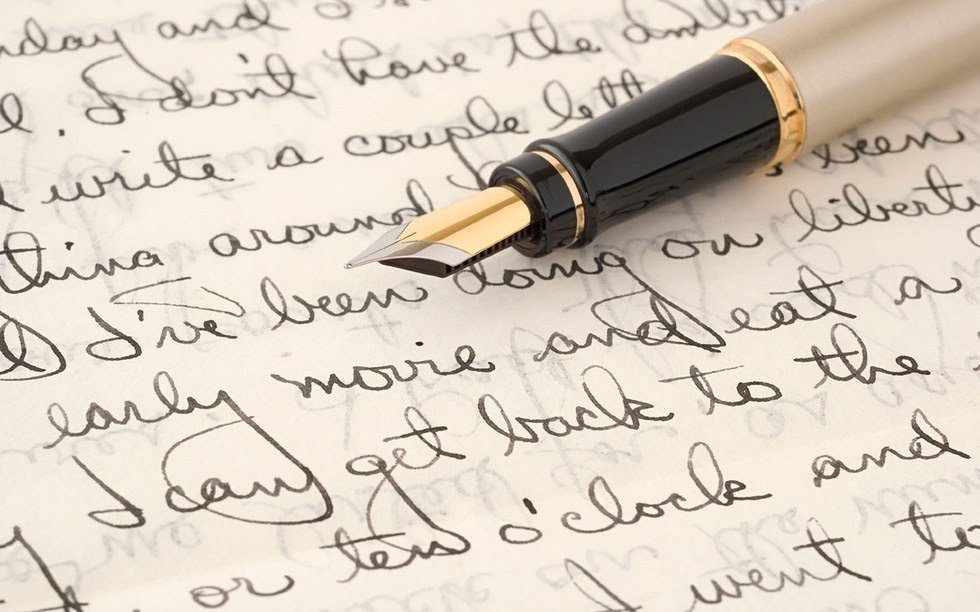 nday and I
. I don't have the ambit
write a couple lett
thing around been
I've been doing on liberty
early movie and eat a
I can get back to the
or ten o'clock and
I went to